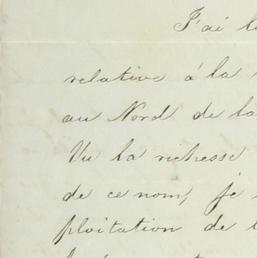 J'ai
relative à la
au Nord de la
Vu la richesse
de ce nom, je
ploitation de